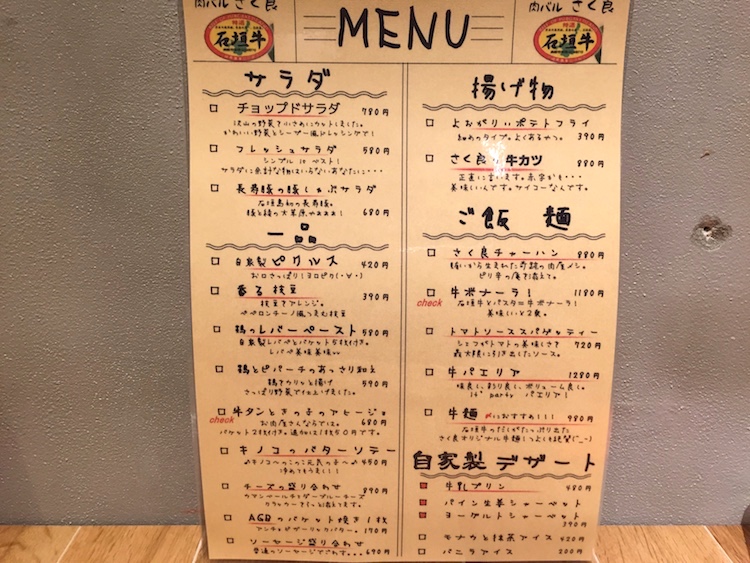 肉バル さく良
石垣牛
MENU
肉バル さく良
石垣牛
サラダ
チョップドサラダ 780円
沢山の野菜を小さめにカットしました。
かわいい野菜とシーザー風ドレッシングで!
フレッシュサラダ 580円
シンプル is ベスト!
サラダに余計な物はいらないあなたに・・・
石垣島初の長寿様。
680円
一品
自家製ピクルス 420円
お口さっぱり!ヨロピク(・∀・)
香る枝豆 390円
枝豆をアレンジ。
ペペロンチーノ風
鶏のレバーペースト 580円
自家製レバペとバケット5枚付き。
レバペ美味美味
鶏とピパーチのあっさり和え
590円
さっぱり野菜で
check
牛タンときの子のアヒージョ
お肉屋さんならでは。 680円
バケット2枚付き。追加は1枚50円です。
キノコのバターソテー
450円
チーズの盛り合わせ 890円
カマンベールチーズ
AGBのバケット焼き1枚
アンチョビガーリックバター。 190円
ソーセージ盛り合わせ
690円
揚げ物
よおがりぃポテトフライ
細めのタイプ。よくあるやつ。 390円
さく良の牛カツ 880円
正直に言います。赤字かも・・・
美味しいんです。サイコーなんです。
ご飯 麺
さく良チャーハン 880円
賄いから生まれた奇跡の肉屋メシ。
ピリ辛の庵を添えて。
check
牛ボナーラ! 1180円
石垣牛とパスタ=牛ボナーラ!
美味しいと2乗。
トマトソーススパゲッティー
シェフがトマトの美味しさを 720円
最大限に引き出したソース。
牛パエリア 1280円
味良し、彩り良し、ボリューム良し。
it' party パエリア!
牛麺 〆におすすめ!!! 980円
石垣牛のだしがたっぷり出た
さく良オリジナル牛麺
自家製デザート
牛乳プリン 480円
パイン生姜シャーベット
ヨーグルトシャーベット
390円
モナカと抹茶アイス 420円
バニラアイス 200円